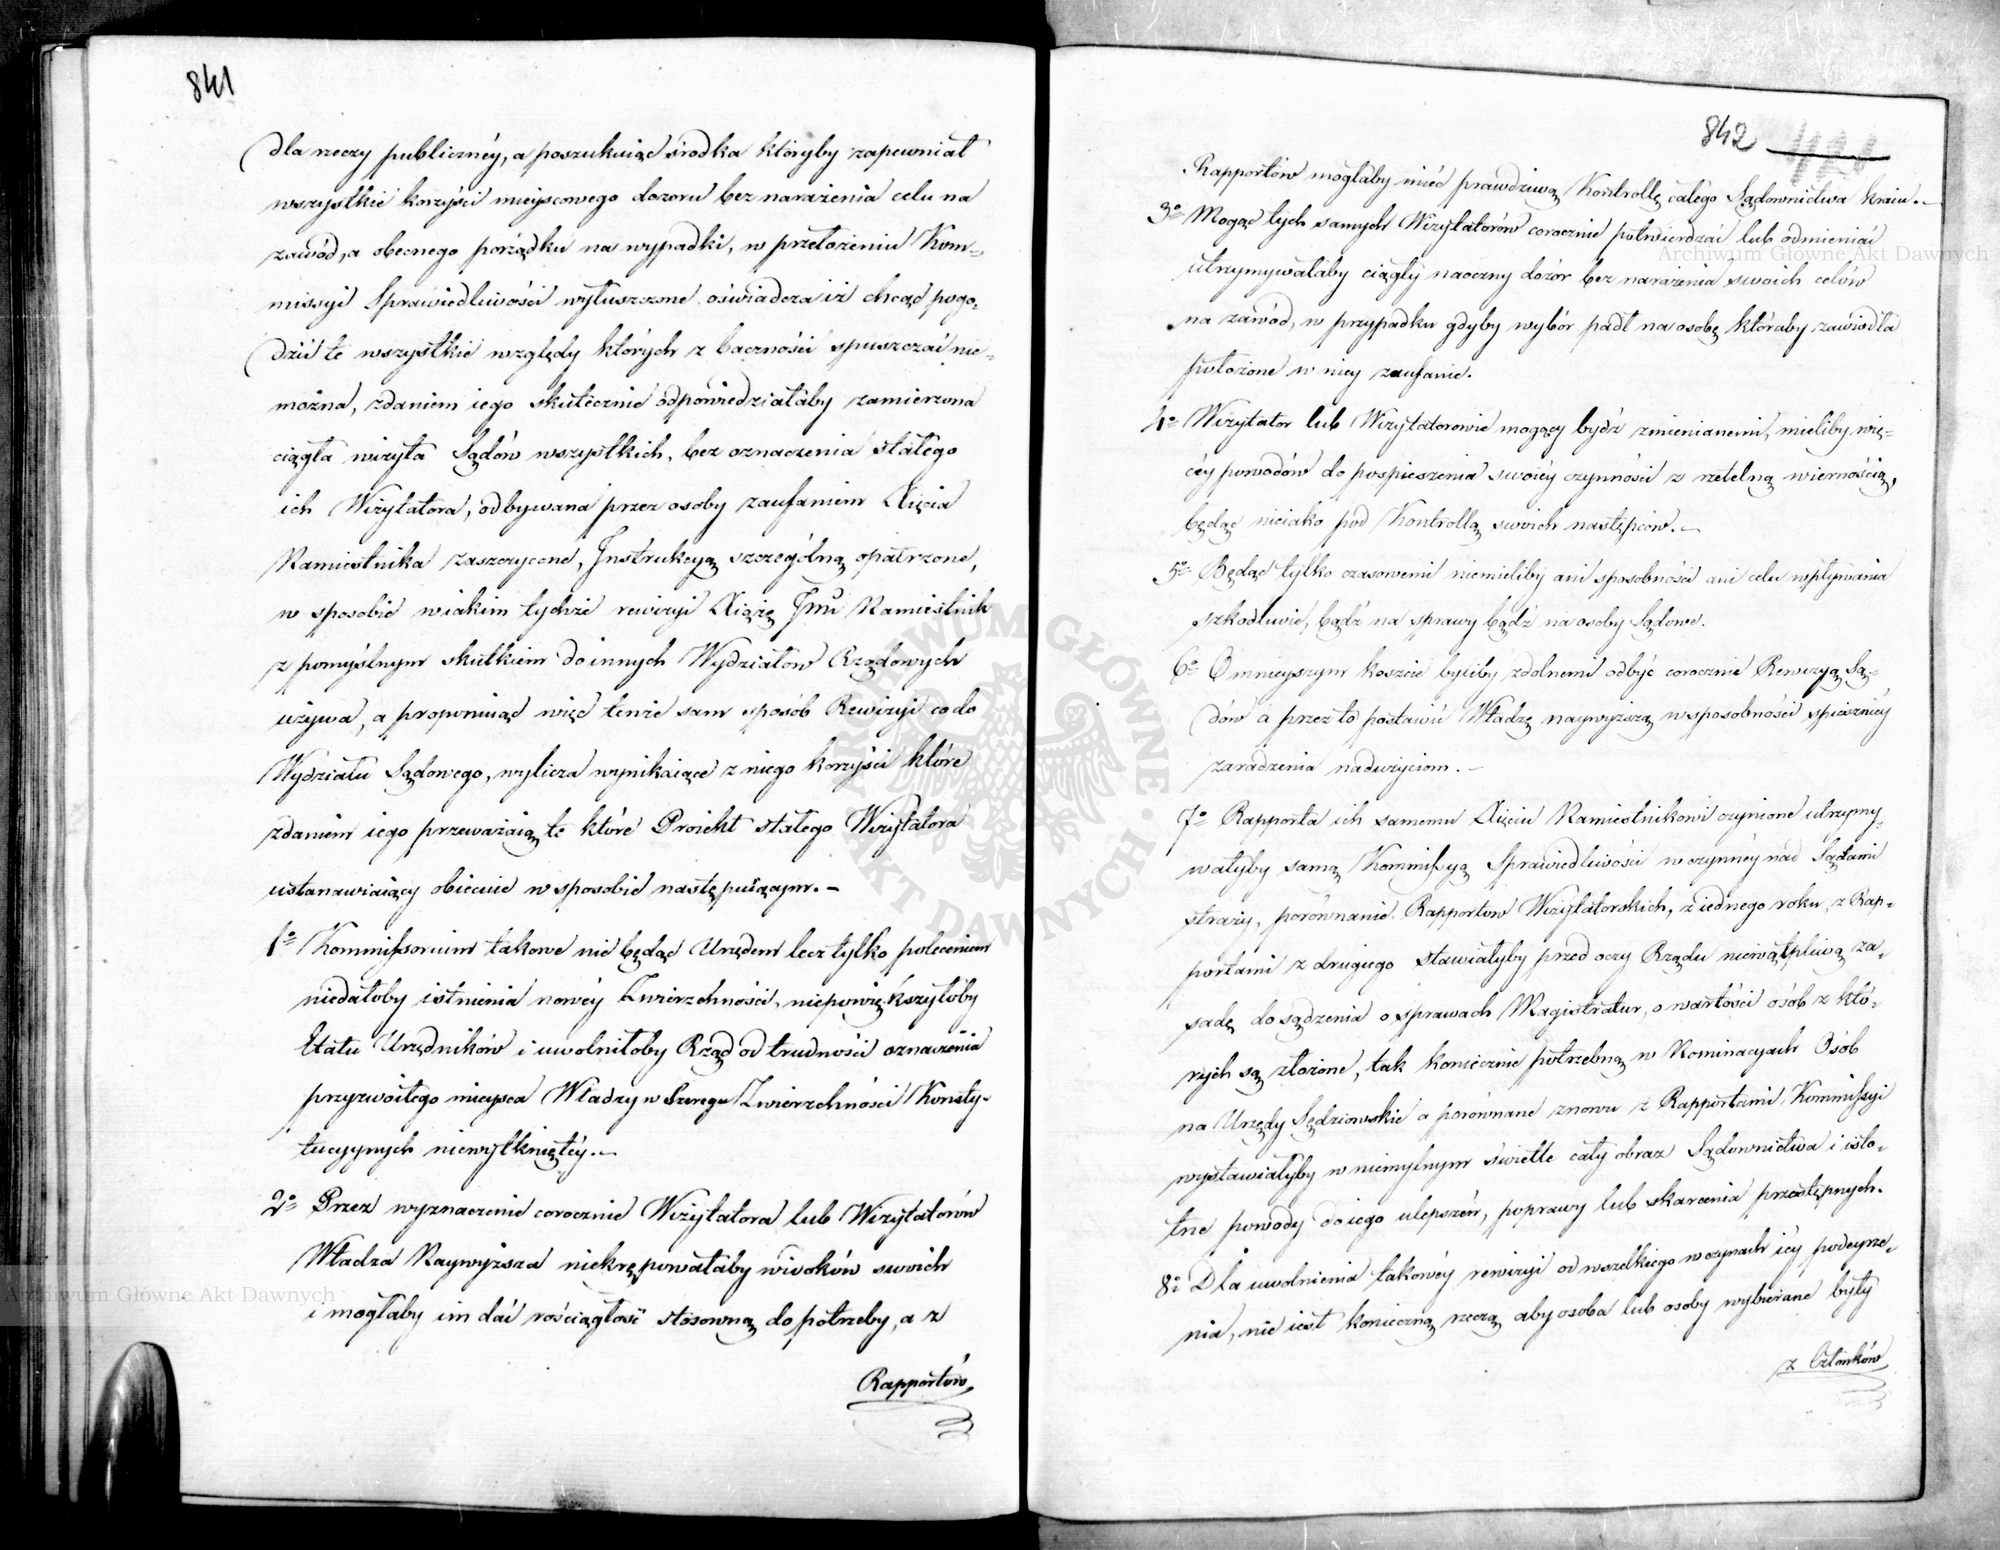 841
dla rzeczy publicznéy, a poszukuiąc środka któryby zapewniał
wszystkie korzyści mieyscowego dozoru bez narażenia celu na
zawód, a obecnego porządku na wypadki, w przełożeniu Kom-
missyi Sprawiedliwości wyłuszczone, oświadcza iż chcąc pogo-
dzić te wszystkie względy których z baczności spuszczać nie-
można, zdaniem iego skutecznie odpowiedziałaby zamierzona
ciągła wizyta Sądów wszystkich, bez oznaczenia stałego
ich Wizytatora, odbywana przez osoby zaufaniem Xięcia
Namiestnika zaszczycone, Instrukcyą szczególną opatrzone,
w sposobie w iakim tychże rewizyi Xiążę Jmć Namiestnik
z pomyślnym skutkiem do innych Wydziałów Rządowych
używa, a proponuiąc więc tenże sam sposób Rewizyi co do
Wydziału Sądowego, wylicza wynikaiące z niego korzyści które
zdaniem iego przeważaią te które Proiekt stałego Wizytatora
ustanawiaiący obiecuie w sposobie następuiącym. –
1o Kommissorium takowe nie będąc Urzędem lecz tylko poleceniem
niedałoby istnienia nowéy Zwierzchności, niepowiększyłoby
Etatu Urzędników i uwolniłoby Rząd od trudności oznaczenia
przyzwoitego mieysca Władzy w Szeregu Zwierzchności Konsty-
tucyynych niewytkniętéy. –
2o Przez wyznaczenie corocznie Wizytatora lub Wizytatorów
Władza Naywyższa niekrępowałaby widoków swoich
i mogłaby im dać rościągłość stosowną do potrzeby, a z
Rapportów
842 421
Rapportów mogłaby mieć prawdziwą Kontrollę całego Sądownictwa kraiu. –
3o Mogąc tych samych Wizytatorów corocznie potwierdzać lub odmieniać
utrzymywałaby ciągły naoczny dozór bez narażenia swoich celów
na zawód, w przypadku gdyby wybór padł na osobę któraby zawiodła
położone w niey zaufanie.
4o Wizytator lub Wizytatorowie mogący bydź zmienianemi, mieliby wię-
céy powodów do pospieszenia swoiéy czynności z rzetelną wiernością,
będąc nieiako pod Kontrollą swoich następców. –
5o Będąc tylko czasowemi niemieliby ani sposobności ani celu wpływania
szkodliwie, bądź na sprawy bądź na osoby Sądowe.
6o O mnieyszym koszcie byliby zdolnemi odbyć corocznie Rewizyą Są-
dów a przez to postawić Władzę naywyższą w sposobności spieszniéy
zaradzenia nadużyciom. –
7o Rapporta ich samemu Xięciu Namiestnikowi czynione utrzymy-
wałyby samą Kommissyą Sprawiedliwości w czynnéy nad Sądami
straży, porównanie Rapportow Wizytatorskich, z iednego roku, z Rap-
portami z drugiego stawiałyby przed oczy Rządu niewątpliwą za-
sadę do sądzenia o sprawach Magistratur, o wartości osób z któ-
rych są złożone, tak koniecznie potrzebną w Nominacyach Osób
na Urzędy Sędziowskie a porównane znowu z Rapportami Kommissyi
wystawiałyby w niemylnym świetle cały obraz Sądownictwa i isto-
tne powody do iego ulepszeń, poprawy lub skarcenia przestępnych.
8o Dla uwolnienia takowéy rewizyi od wszelkiego w czynach iéy podeyrze-
nia, nie iest konieczną rzeczą aby osoba lub osoby wybierane były
z Członków
Archiwum Główne Akt Dawnych
Archiwum Główne Akt Dawnych
ARCHIWUM GŁÓWNE AKT DAWNYCH